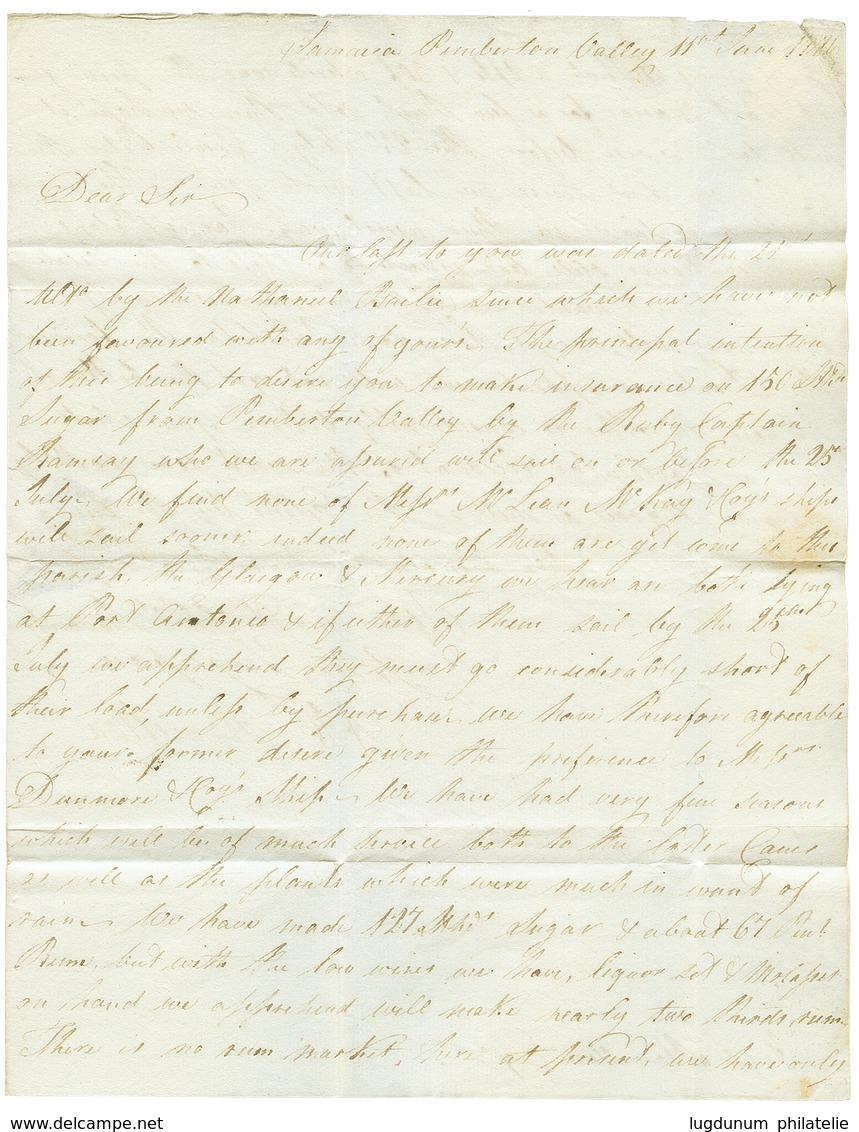 Jamaica Pemberton Valley 11th June
Dear Sir
Our last to you was dated the 21st
Ulto by the Nathaniel Bailie since which we have not
been favoured with any of yours. The principal intention
of this being to desire you to make insurance on 150 Hhds
Sugar from Pemberton Valley by the Ruby Captain
Ramsay who we are assured will sail on or before the 25th
July. We find none of Messrs McLean McKay & Coy's ships
will sail sooner, indeed none of them are yet come to this
parish, the Glasgow & Mercury we hear are both lying
at Port Antonio & if either of them sail by the 25th
July we apprehend they must go considerably short of
their load, unless by purchase, we have therefore agreeable
to your former desire given the preference to Messrs
Dunmore & Coy's Ship. We have had very fine seasons
which will be of much service both to the Canes
as well as the plants which were much in want of
rain. We have made 127 Hhds Sugar & about 67 Puns
Rum, but with the low wines we have, liquor set & Molasses
on hand we apprehend will make nearly two thirds rum.
There is no rum market here at present, we have only
delcampe.net
lugdunum philatelie